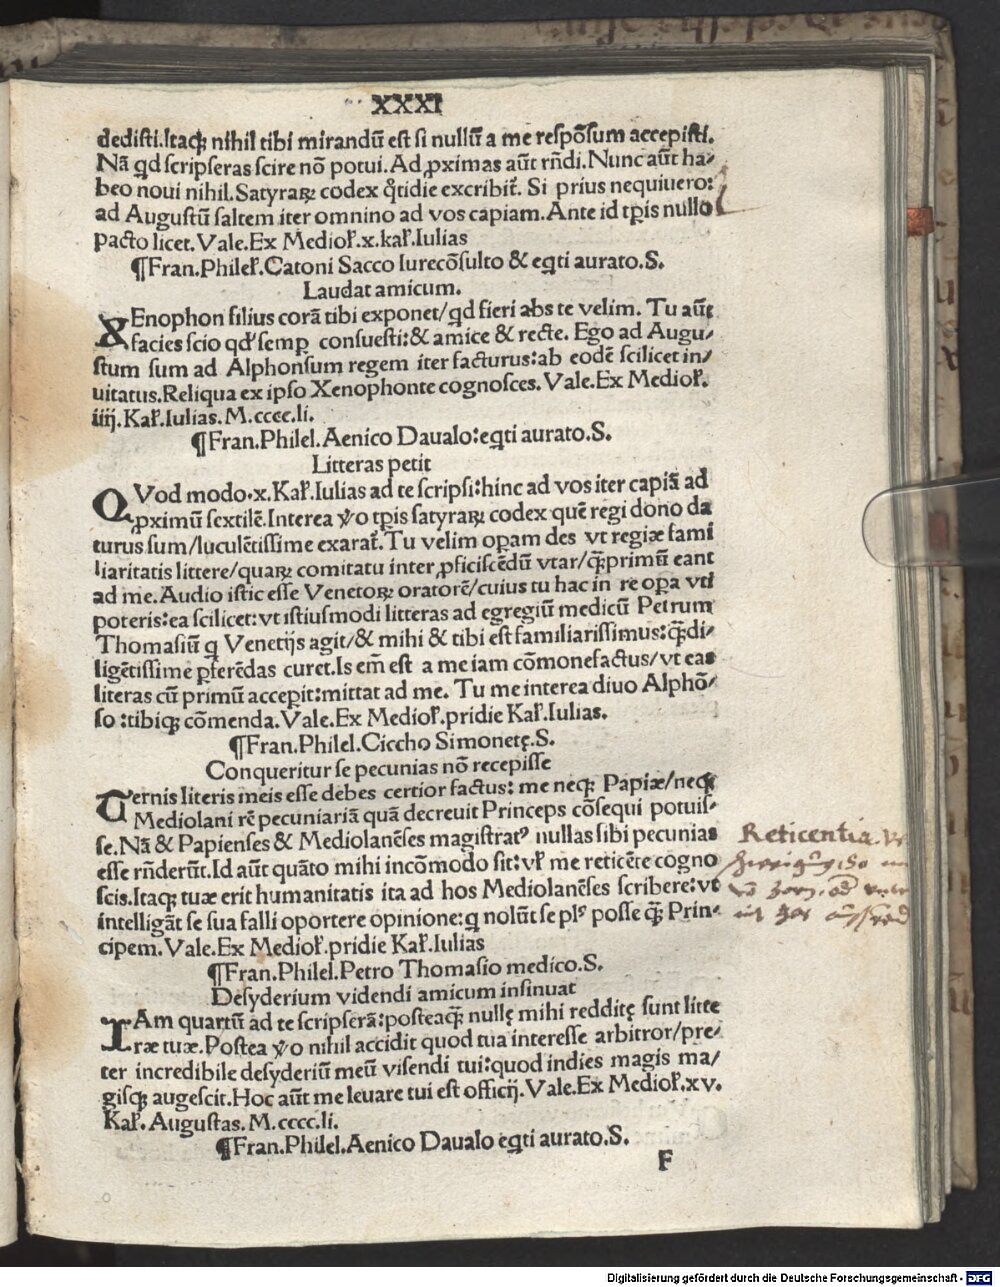 XXXI
dedisti.Itaqꝫ nihil tibi mirandũ est si nullũ a me respõsum accepisti.
Nã qd scripseras scire nõ potui. Ad ꝓximas aũt rñdi. Nunc aũt ha⸗
beo noui nihil. Satyraꝝ codex q̃tidie excribit̃. Si prius nequiuero:
ad Augustũ saltem iter omnino ad vos capiam. Ante id tꝑis nullo
pacto licet. Vale. Ex Medioł.x.kał.Iulias
¶Fran.Phileł.Catoni Sacco Iurecõsulto & eq̃ti aurato.S.
Laudat amicum.
XEnophon filius corã tibi exponet/qd fieri abs te velim. Tu aũt
facies scio qd' semꝑ consuesti:& amice & recte. Ego ad Augu⸗
stum sum ad Alphonsum regem iter facturus:ab eodẽ scilicet in⸗
uitatus.Reliqua ex ipso Xenophonte cognosces. Vale.Ex Medioł.
iiij. Kał.Iulias. M.cccc.li.
¶Fran.Philel.Aenico Daualo:eq̃ti aurato.S.
Litteras petit
QVod modo.x.Kał.Iulias ad te scripsi:hinc ad vos iter capiã ad
ꝓximũ sextilẽ.Interea ꝟo tꝑis satyraꝝ codex quẽ regi dono da
turus sum/luculẽtissime exarat̃.Tu velim oꝑam des vt regiæ fami
liaritatis littere/quaꝝ comitatu inter ꝓficiscẽdũ vtar/q̃ꝫprimũ eant
ad me.Audio istic esse Venetoꝝ oratorẽ/cuius tu hac in re oꝑa vti
poteris:ea scilicet:vt istiusmodi litteras ad egregiũ medicũ Petrum
Thomasiũ q Venetijs agit/& mihi & tibi est familiarissimus:q̃ꝫdi⸗
ligẽtissime ꝑferẽdas curet.Is em̃ est a me iam cõmonefactus/vt eas
literas cũ primũ acceꝑit:mittat ad me. Tu me interea diuo Alphõ⸗
so:tibiqꝫ cõmenda.Vale.Ex Medioł.pridie Kał.Iulias.
¶Fran.Philel.Ciccho Simonetę.S.
Conqueritur se pecunias nõ recepisse
Ternis literis meis esse debes certior factus: me neqꝫ Papiæ/neqꝫ
Mediolani rẽ pecuniariã quã decreuit Princeps cõsequi potuis⸗
se.Nã & Papienses & Mediolanẽses magistratꝰ nullas sibi pecunias
esse rñderũt.Id aũt quãto mihi incõmodo sit:vł me reticẽte cogno
scis.Itaqꝫ tuæ erit humanitatis ita ad hos Mediolanẽses scribere:vt
intelligãt se sua falli oportere opinione:q nolũt se plꝰ posse q̃ꝫ Prin⸗
cipem.Vale.Ex Medioł.pridie Kał.Iulias
Reticentia.
¶Fran.Philel.Petro Thomasio medico.S.
Desyderium videndi amicum insinuat
IAm quartũ ad te scripserã:posteaq̃ꝫ nullę mihi redditę sunt litte
ræ tuæ.Postea ꝟo nihil accidit quod tua interesse arbitror/pre⸗
ter incredibile desyderiũ meũ visendi tui:quod indies magis ma⸗
gisqꝫ augescit.Hoc aũt me leuare tui est officij.Vale.Ex Medioł.xv.
Kał. Augustas. M.cccc.li.
¶Fran.Philel.Aenico Daualo eq̃ti aurato.S.
F
Digitalisierung gefördert durch die Deutsche Forschungsgemeinschaft - DFG